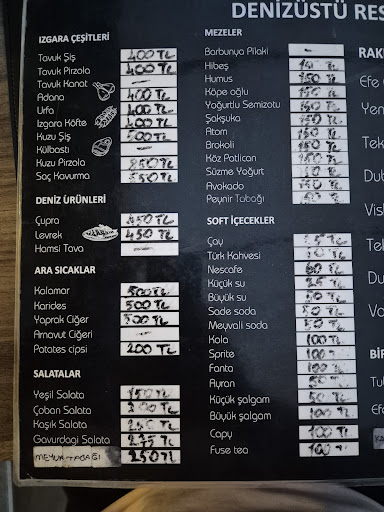 DENİZÜSTÜ RES
IZGARA ÇEŞİTLERİ
Tavuk Şiş 400 TL
Tavuk Pirzola 400 TL
Tavuk Kanat —
Adana 400 TL
Urfa 400 TL
Izgara Köfte 400 TL
Kuzu Şiş 500 TL
Külbastı —
Kuzu Pirzola 850 TL
Saç Kavurma 550 TL
DENİZ ÜRÜNLERİ
Çupra 450 TL
Levrek 450 TL
Hamsi Tava —
ARA SICAKLAR
Kalamar 500 TL
Karides 500 TL
Yaprak Ciğer 500 TL
Arnavut Ciğeri —
Patates cipsi 200 TL
SALATALAR
Yeşil Salata 150 TL
Çoban Salata 200 TL
Kaşık Salata TL
Gavurdagi Salata TL
MEYVE TABAĞI 250 TL
MEZELER
Barbunya Pilaki —
Hibeş TL
Humus 150 TL
Köpe oğlu 150 TL
Yoğurtlu Semizotu 150 TL
Şakşuka 150 TL
Atom 150 TL
Brokoli 150 TL
Köz Patlican 150 TL
Süzme Yoğurt 150 TL
Avokado 150 TL
Peynir Tabağı TL
SOFT İÇECEKLER
Çay TL
Türk Kahvesi TL
Nescafe 60 TL
Küçük su 25 TL
Büyük su 50 TL
Sade soda 50 TL
Meyvali soda 50 TL
Kola 100 TL
Sprite 100 TL
Fanta 100 TL
Ayran 50 TL
Küçük şalgam 50 TL
Büyük şalgam 100 TL
Capy 100 TL
Fuse tea 100 TL
RAK
Efe
Yen
Tek
Dub
Vis
Te
Du
Vo
Bİ
Tu
Efe